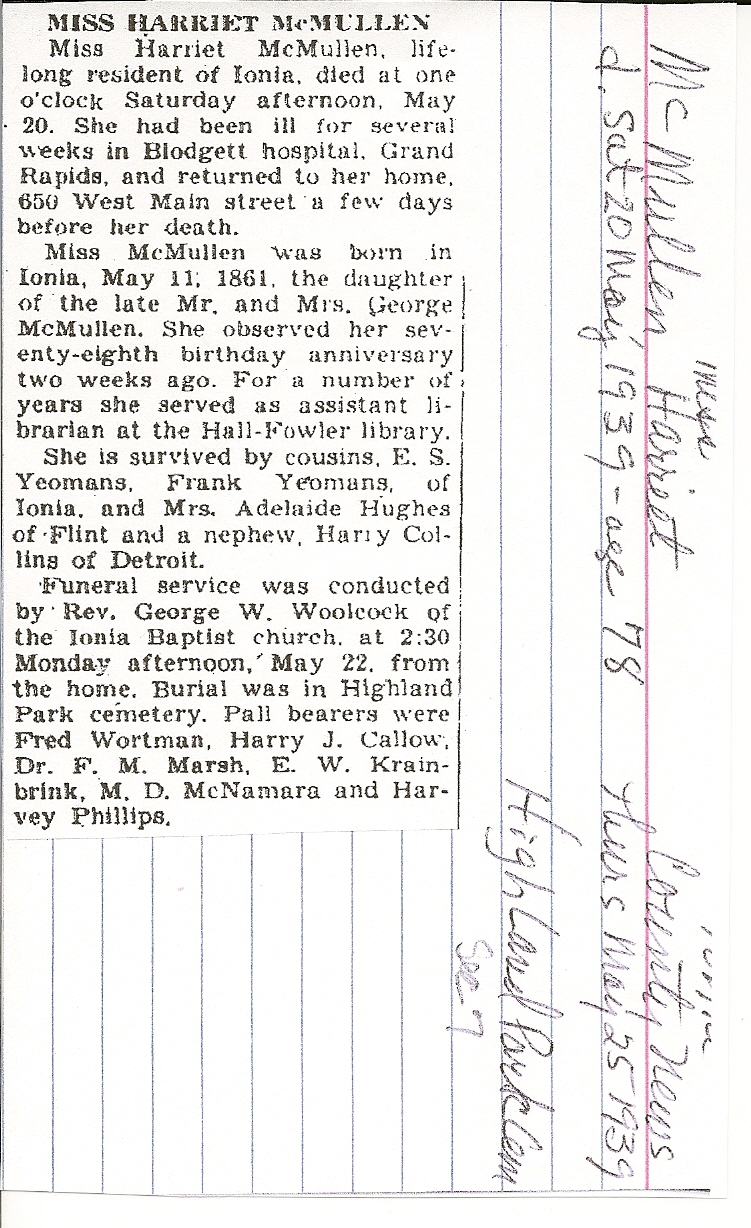 MISS HARRIET McMULLEN
Miss Harriet McMullen, life-
long resident of Ionia, died at one
o'clock Saturday afternoon, May
20. She had been ill for several
weeks in Blodgett hospital, Grand
Rapids, and returned to her home,
650 West Main street a few days
before her death.
Miss McMullen was born in
Ionia, May 11, 1861, the daughter
of the late Mr. and Mrs. George
McMullen. She observed her sev-
enty-eighth birthday anniversary
two weeks ago. For a number of
years she served as assistant li-
brarian at the Hall-Fowler library.
She is survived by cousins, E. S.
Yeomans, Frank Yeomans, of
Ionia, and Mrs. Adelaide Hughes
of Flint and a nephew, Harry Col-
lins of Detroit.
Funeral service was conducted
by Rev. George W. Woolcock of
the Ionia Baptist church, at 2:30
Monday afternoon, May 22, from
the home. Burial was in Highland
Park cemetery. Pall bearers were
Fred Wortman, Harry J. Callow,
Dr. F. M. Marsh, E. W. Krain-
brink, M. D. McNamara and Har-
vey Phillips.
McMullen Harriet
County News
d. Sat 20 May 1939 - age 78
Thurs May 25 1939
Highland Park Cem
Sec 7